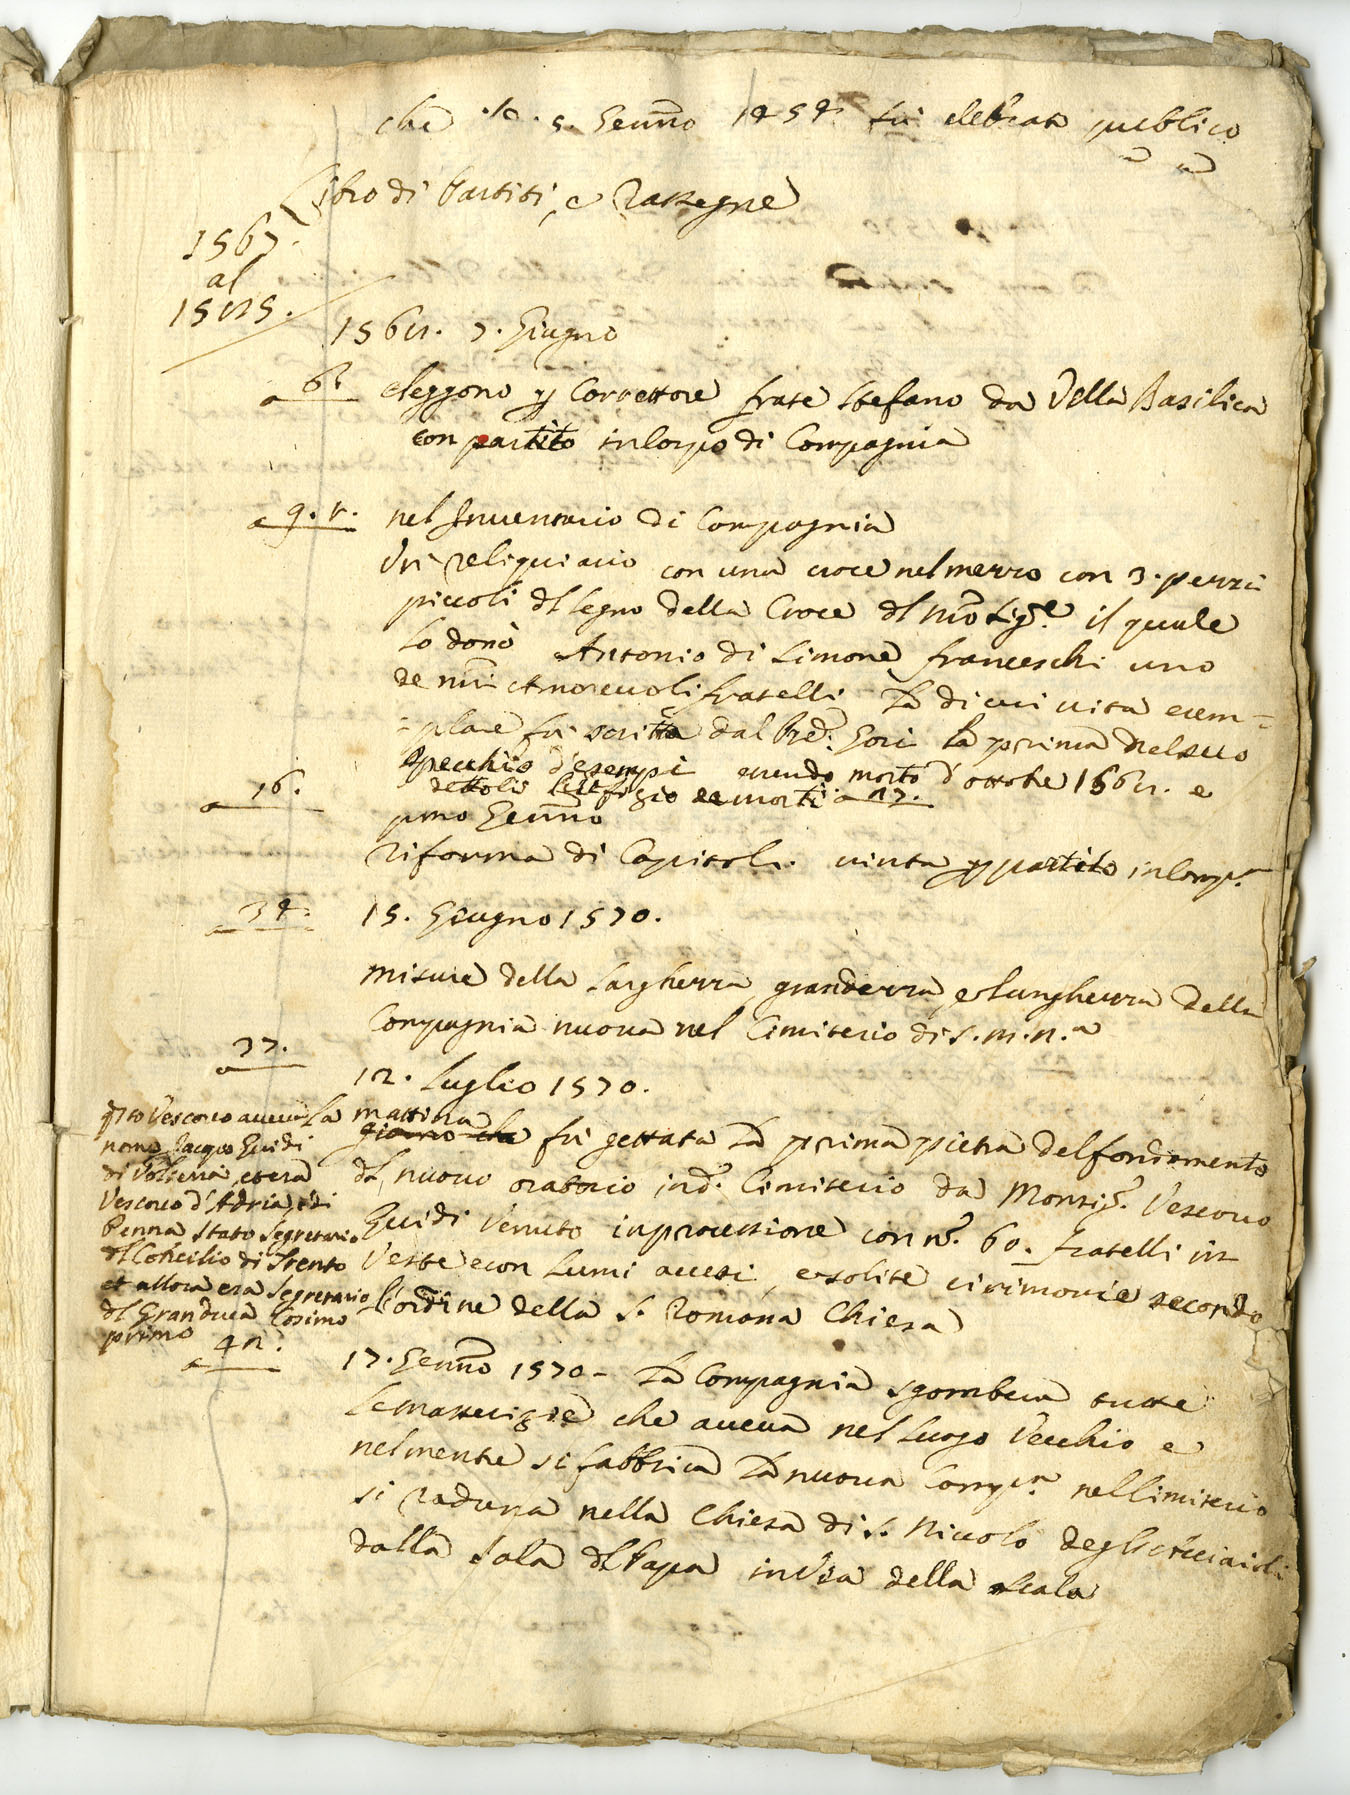 che a 5. Genn̄o 1454. fu elebrato publico
Libro di Partiti, e Rassegne
1567.
al
1575.
156 . 7. Giugno
a 6t eleggono p Correttore frate Stefano da Vella Basilica
con partito in Corpo di Compagnia
a 9. t. nel Inventario di Compagnia
Un Reliquiario con una croce nel mezzo con 3. pezzi
piccoli dl legno della Croce dl nr̄o Sig.e il quale
lo donò Antonio di Simone franceschi uno
de nr̄i Amorevoli fratelli. La di cui vita esem=
=plare fu scritta dal Pred. Gori la prima nel suo
Specchio d'esempi essendo morto d'ottobre 156 . e
dettoli l'uffizio de morti a 17.
a 16. primo Genn̄o
Riforma di Capitoli. vinta p partito in Comp.a
a 34. 15. Giugno 1570.
misure della larghezza grandezza, e lunghezza della
Compagnia nuova nel Cimiterio di S. M. N.a
a 37. 12. Luglio 1570.
La mattina
giorno che fu gettata la prima pietra del fondamento
dl nuovo oratorio in d. Cimiterio da Monsig.r Vescovo
Guidi venuto in processione con n.o 60. fratelli in
Veste e con Lumi accesi, e solite cirimonie secondo
l'ordine della S. Romana Chiesa
qto Vescovo aveva
nome Jacopo Guidi
di Volterra, et era
Vescovo d'Adria, e di
Penna Stato Segretario
dl Concilio di Trento
et allora era Segretario
dl Granduca Cosimo
primo
a 42. 17. Genn̄o 1570 - La Compagnia sgombera tutte
le masserizie che aveva nel luogo Vecchio e
nel mentre si fabbrica la nuova Comp.a nel Cimiterio
si raduna nella Chiesa di S. Niccolo degli
dalla Sala dl Papa in Via della Scala